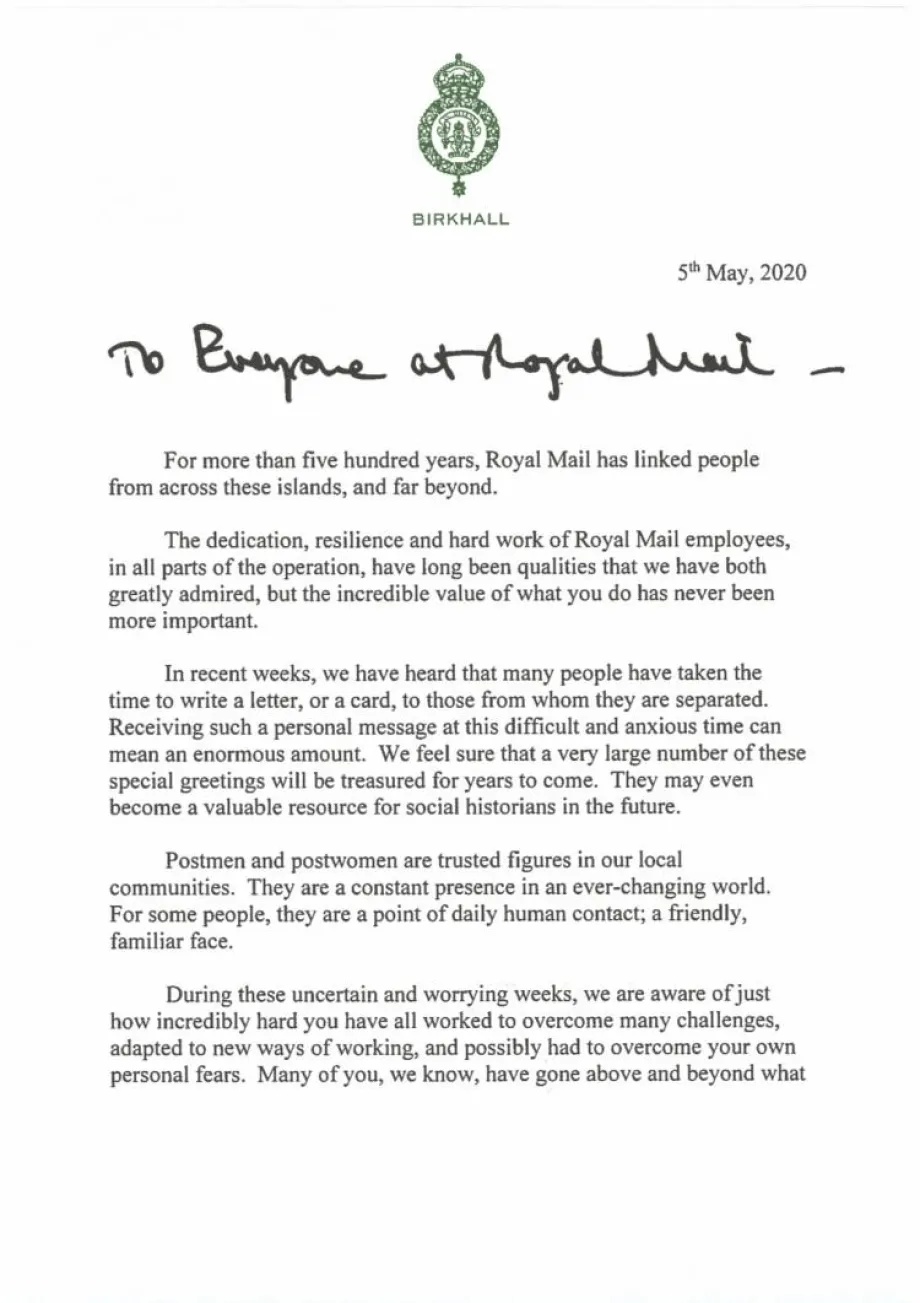 BIRKHALL
5th May, 2020
To Everyone at Royal Mail –
For more than five hundred years, Royal Mail has linked people
from across these islands, and far beyond.
The dedication, resilience and hard work of Royal Mail employees,
in all parts of the operation, have long been qualities that we have both
greatly admired, but the incredible value of what you do has never been
more important.
In recent weeks, we have heard that many people have taken the
time to write a letter, or a card, to those from whom they are separated.
Receiving such a personal message at this difficult and anxious time can
mean an enormous amount. We feel sure that a very large number of these
special greetings will be treasured for years to come. They may even
become a valuable resource for social historians in the future.
Postmen and postwomen are trusted figures in our local
communities. They are a constant presence in an ever-changing world.
For some people, they are a point of daily human contact; a friendly,
familiar face.
During these uncertain and worrying weeks, we are aware of just
how incredibly hard you have all worked to overcome many challenges,
adapted to new ways of working, and possibly had to overcome your own
personal fears. Many of you, we know, have gone above and beyond what